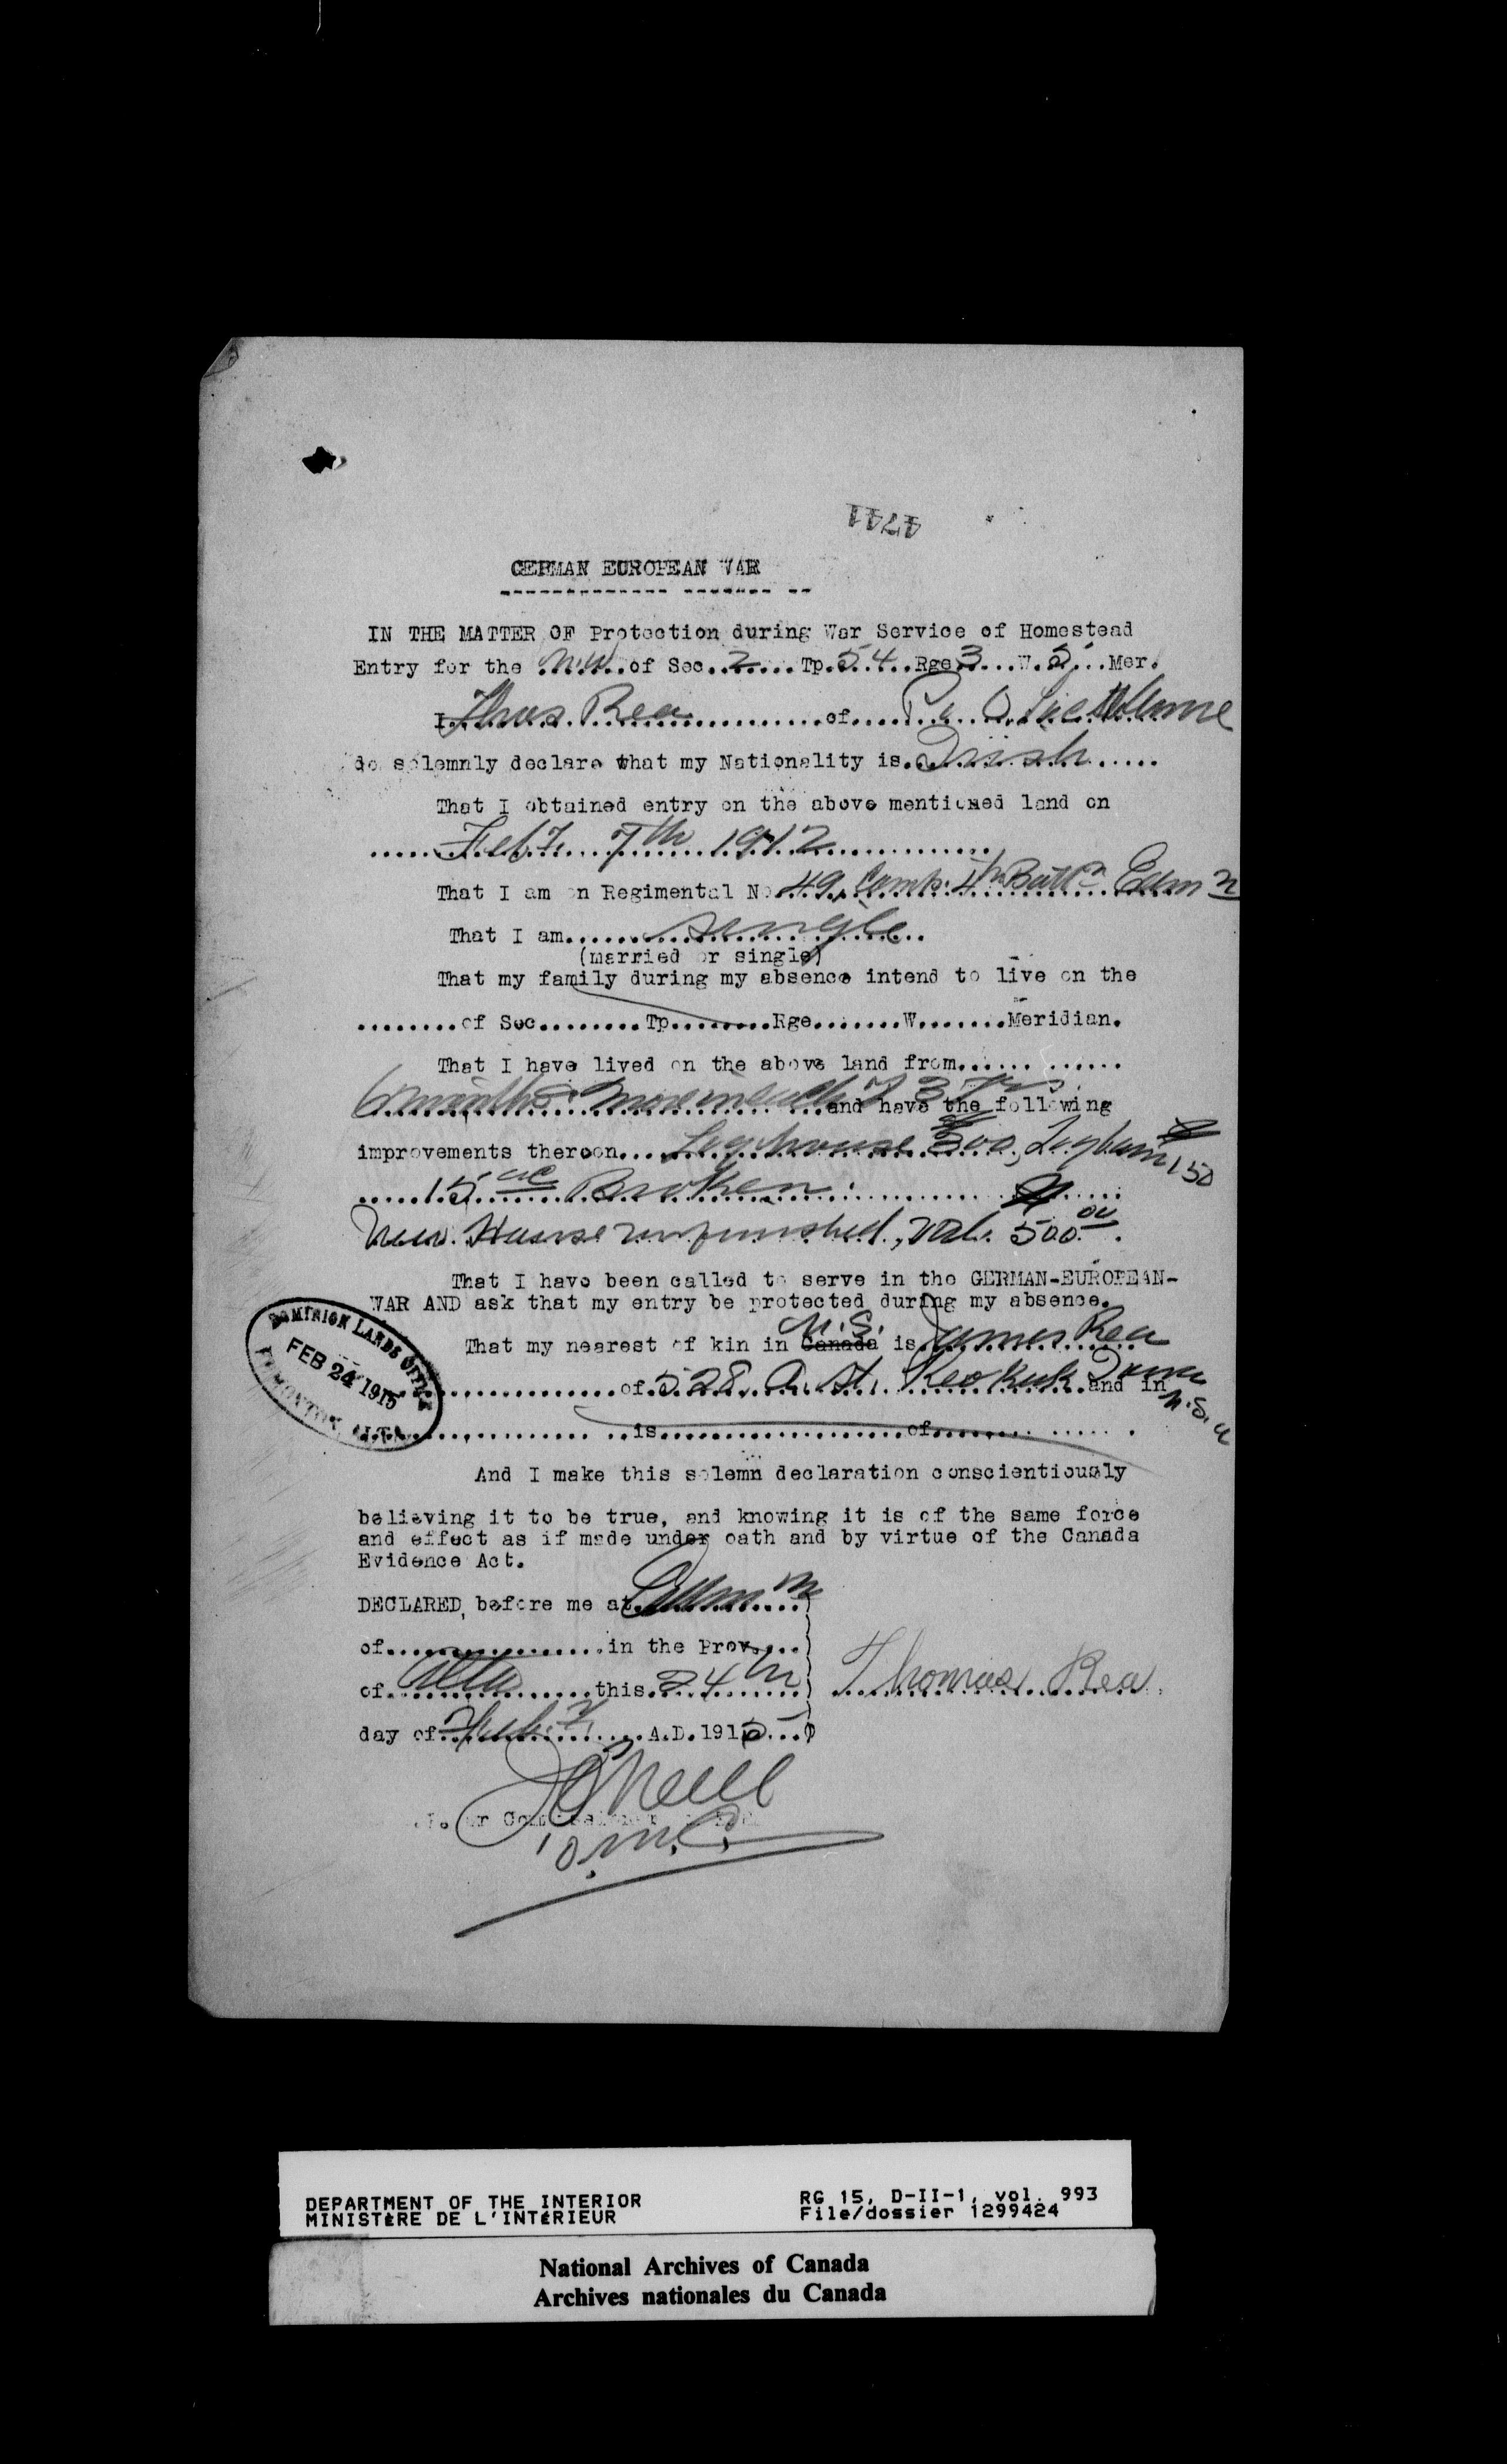 4741
GERMAN EUROPEAN WAR
IN THE MATTER OF Protection during War Service of Homestead
Entry for the N.W. of Sec. 2 Tp. 54 Rge 3 W. 5 Mer.
I Thos Rea of P. O.
do solemnly declare that my Nationality is Irish
That I obtained entry on the above mentioned land on
Feby. 7th 1912
That I am on Regimental No. 49, Comp. 4th Battn Edmn
That I am single
(married or single)
That my family during my absence intend to live on the
of Sec Tp Rge W Meridian.
That I have lived on the above land from
6 months in each of 3 yrs and have the following
improvements thereon Log house 300, Log barn 150
15 ac Broken
New House unfinished, val. 500.00
That I have been called to serve in the GERMAN-EUROPEAN-
WAR AND ask that my entry be protected during my absence.
That my nearest of kin in Canada U.S. is James Rea
of 528 A. St. Keokuk Iowa and in U.S.A
is of
And I make this solemn declaration conscientiously
believing it to be true, and knowing it is of the same force
and effect as if made under oath and by virtue of the Canada
Evidence Act.
DECLARED before me at Edmn
of in the Prov.
of Alta this 24th Thomas Rea
day of Feby A.D. 1915
O'Neill
DOMINION LANDS OFFICE
FEB 24 1915
EDMONTON, ALTA.
DEPARTMENT OF THE INTERIOR
MINISTÈRE DE L'INTÉRIEUR
RG 15, D-II-1, vol. 993
File/dossier 1299424
National Archives of Canada
Archives nationales du Canada